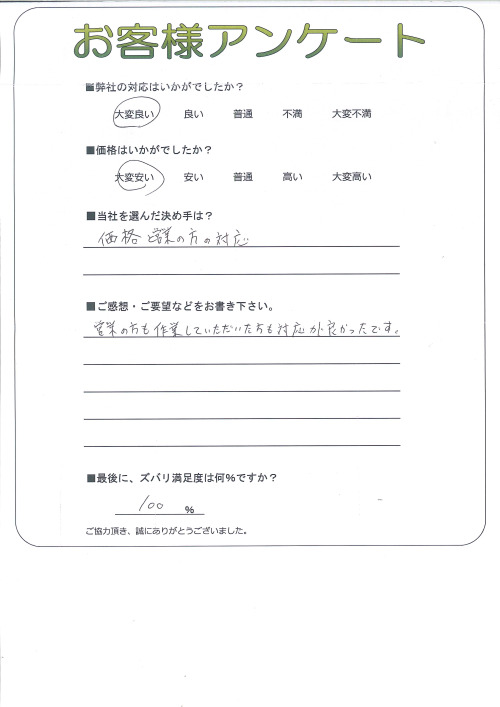 お客様アンケート
■弊社の対応はいかがでしたか？
大変良い 良い 普通 不満 大変不満
■価格はいかがでしたか？
大変安い 安い 普通 高い 大変高い
■当社を選んだ決め手は？
価格 営業の方の対応
■ご感想・ご要望などをお書き下さい。
営業の方も作業していただいたも対応が良かったです。
■最後に、ズバリ満足度は何%ですか？
100 %
ご協力頂き、誠にありがとうございました。